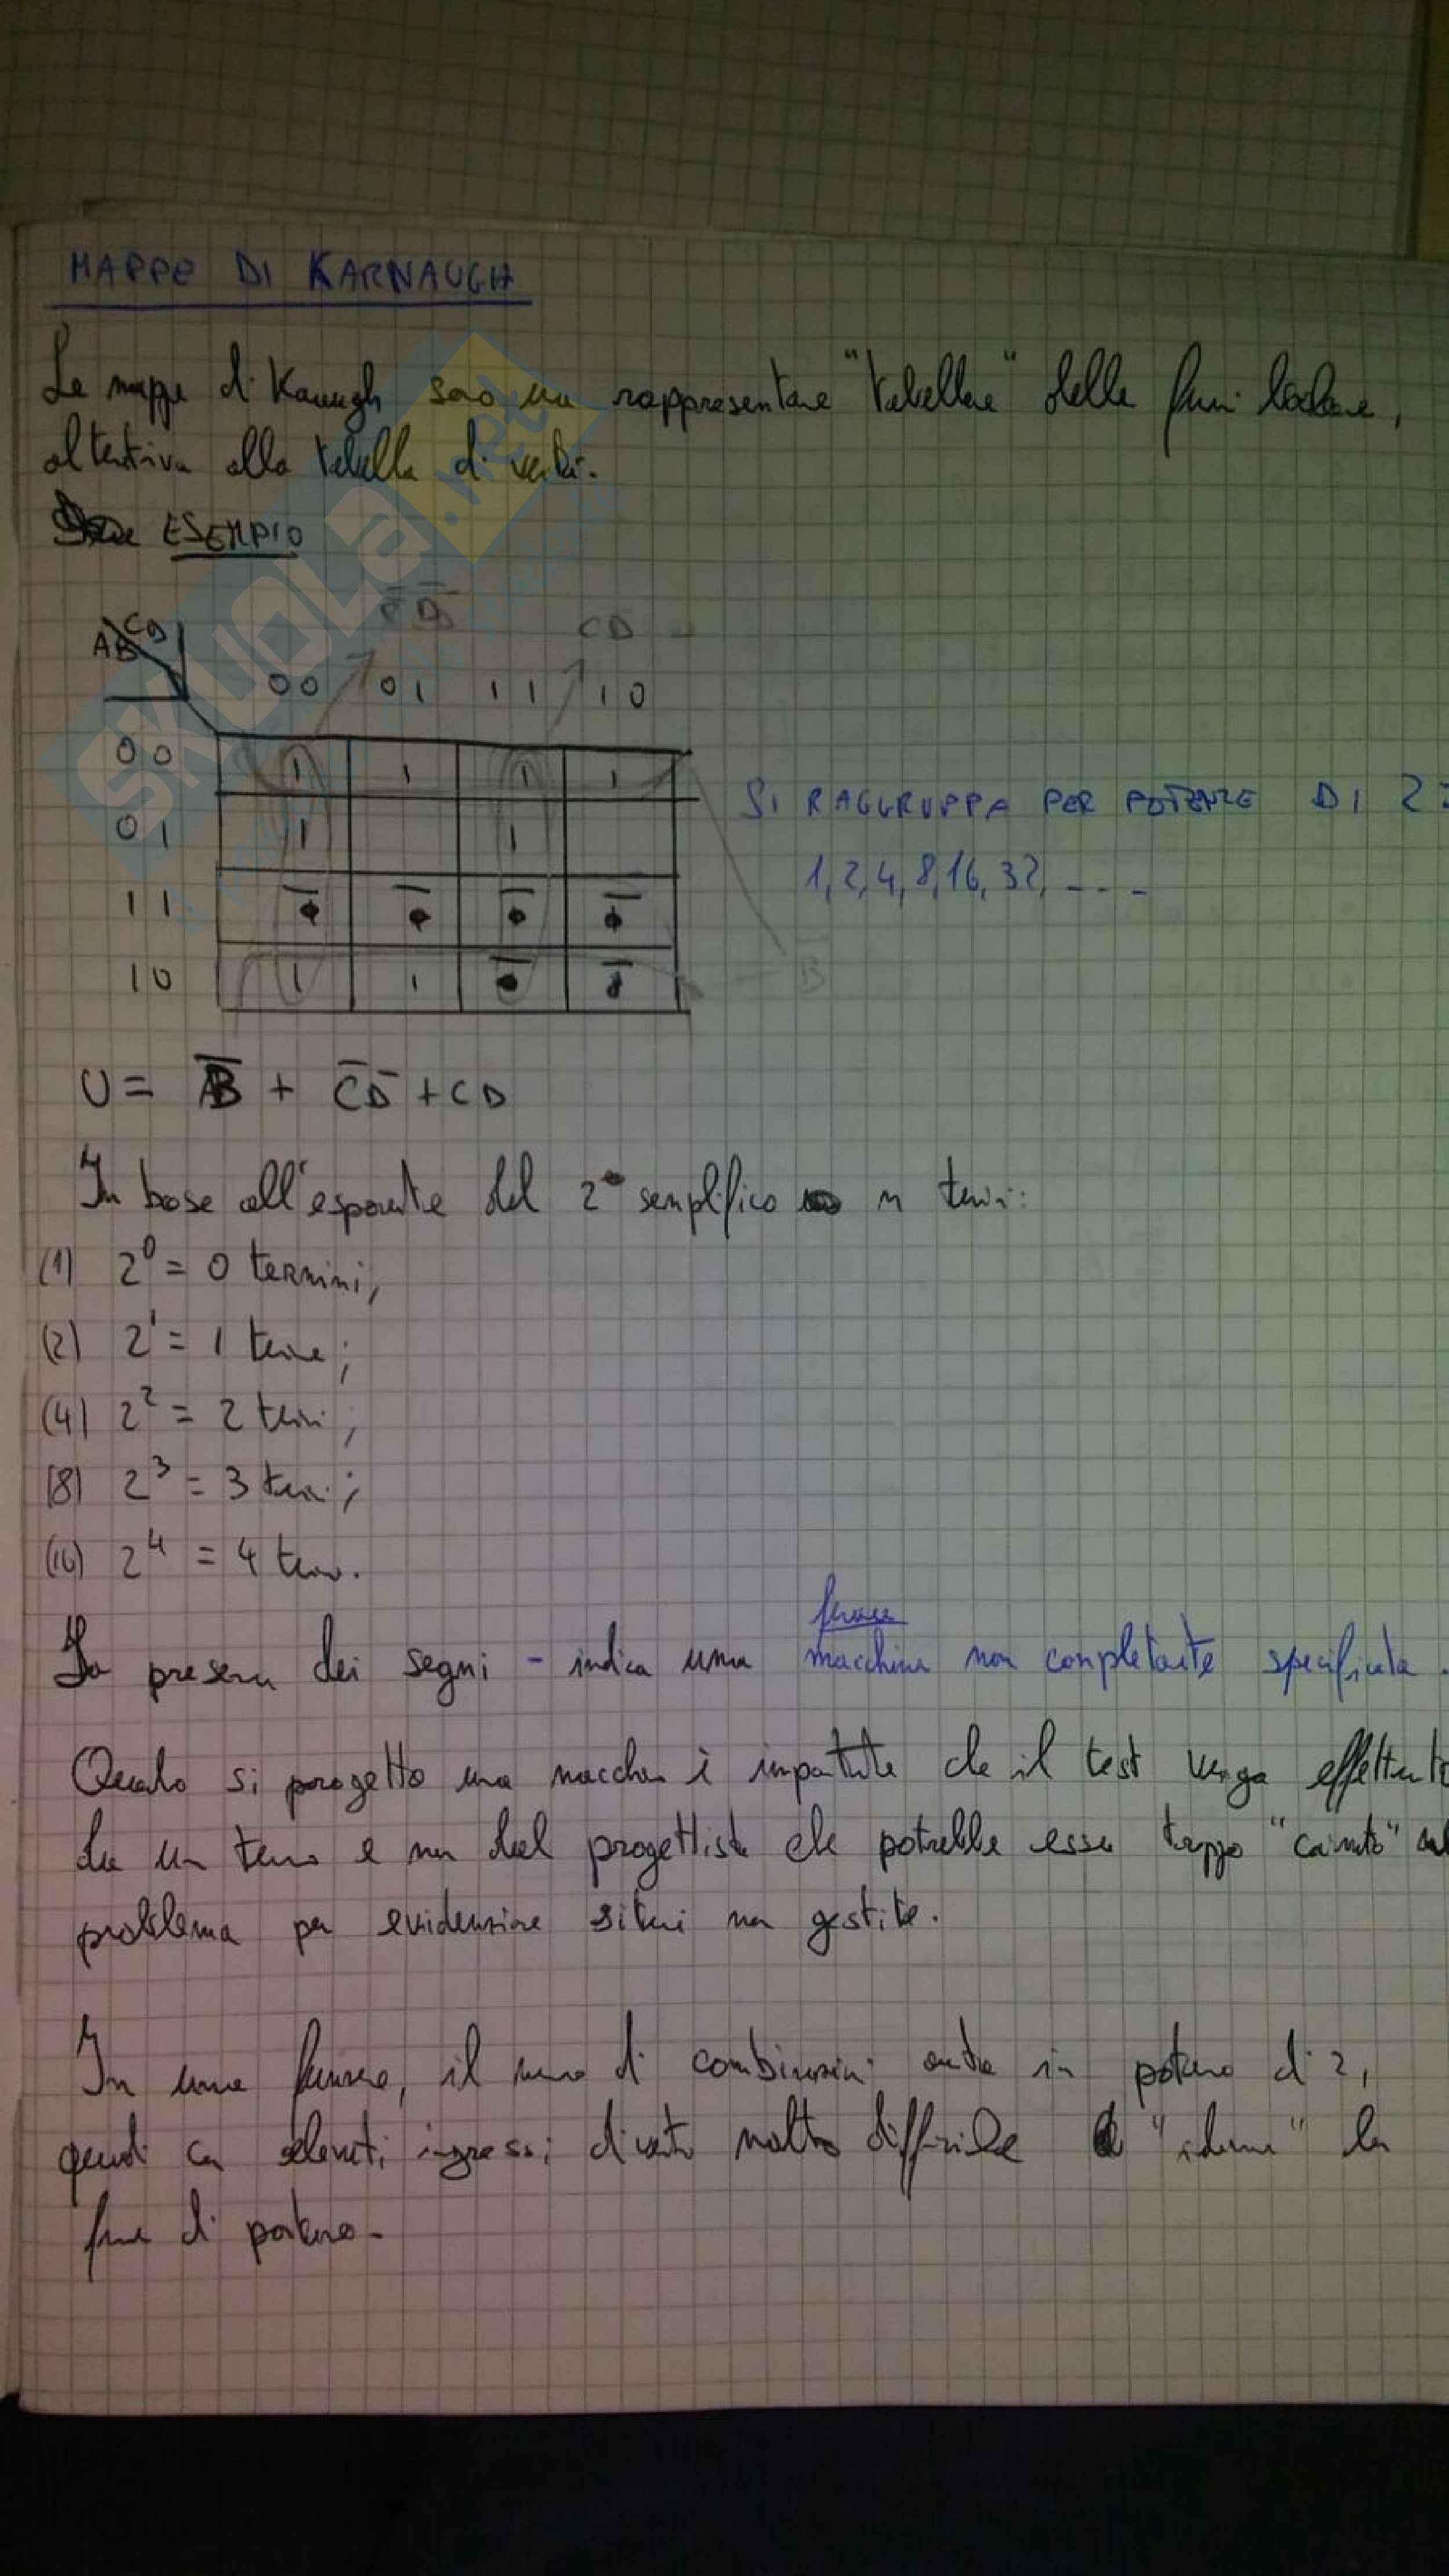 MAPPE DI KARNAUGH
Le mappe di Karnaugh sono una rappresentazione "tabellare" delle funzioni booleane,
alternativa alla tabella di verità.
ESEMPIO
C̅ D̅ CD
AB CD
00 01 11 10
00 1 1 1 1
01 1 1
SI RAGGRUPPA PER POTENZE DI 2:
1,2,4,8,16,32, - - -
11 - - - -
10 1 1 - -
B̅
U = B̅ + C̅D̅ + CD
In base all'esponente del 2 semplifico n termini:
(1) 2⁰ = 0 termini;
(2) 2¹ = 1 termine;
(4) 2² = 2 termini;
(8) 2³ = 3 termini;
(16) 2⁴ = 4 termini.
funzione
La presenza dei segni - indica una macchina non completamente specificata.
Quando si progetta una macchina è importante che il test venga effettuato
da un terzo e non dal progettista che potrebbe essere troppo "
problema per evidenziare situazioni non gestite.
In una funzione, il numero di combinazioni in potenze di 2,
quindi con elevati ingressi diventa molto difficile la
di partenza.
SKUOLA.net